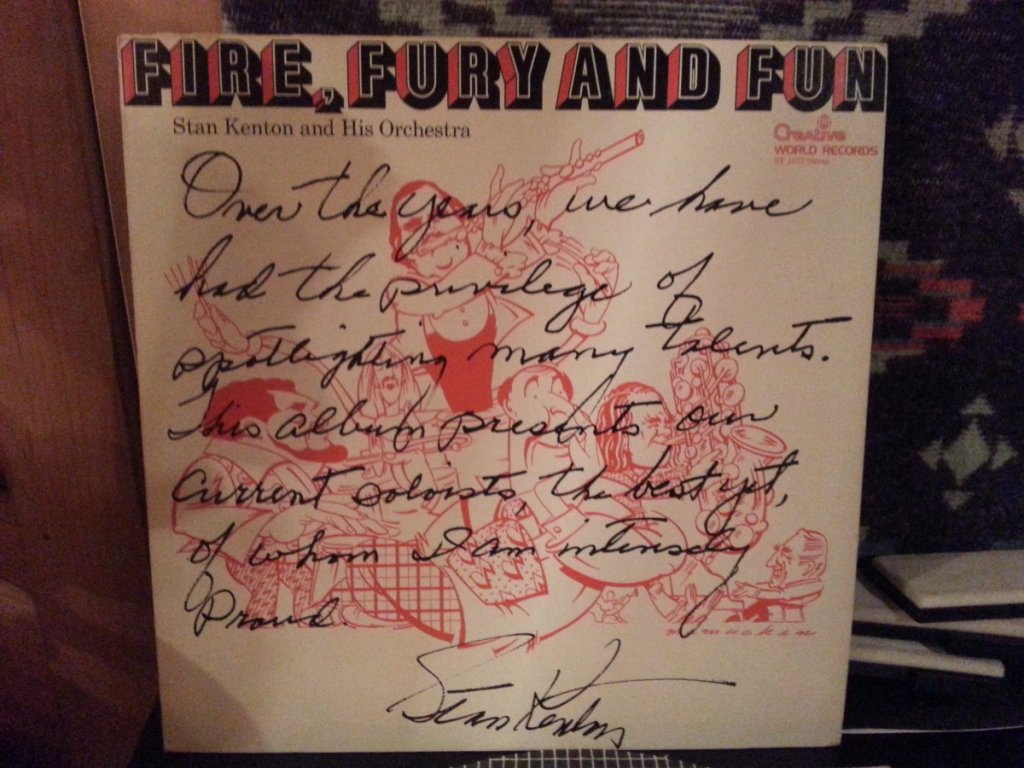 FIRE, FURY AND FUN
Stan Kenton and His Orchestra
Creative
WORLD RECORDS
ST 1073 Stereo
Over the years, we have
had the privilege of
spotlighting many talents.
This album presents our
current soloists, the best yet,
of whom I am intensely
Proud.
Stan Kenton